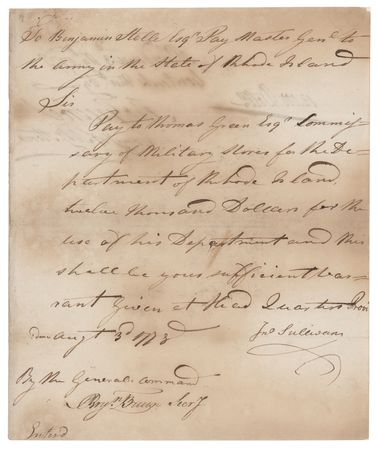 To Benjamin Stelle Esqr Pay Master Genl to
the Army in the State of Rhode Island
Sir
Pay to Thomas Green Esqr Commis-
sary of Military Stores for the De-
partment of Rhode Island,
twelve Thousand Dollars for the
use of his Department and this
shall be your sufficient War-
rant Given at Head Quarters Provi
dence Augt 3d 1778
Jno Sullivan
By the Generals Command
Secy
Enterd